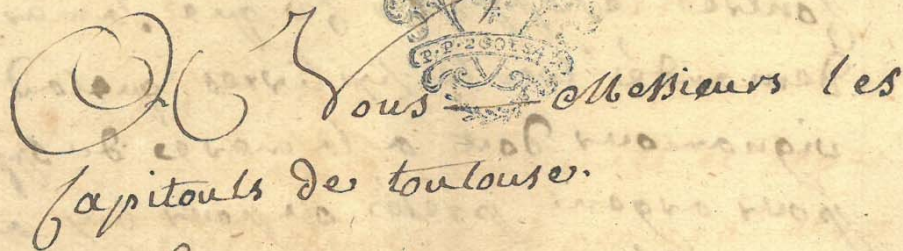 A Vous Messieurs les
Capitouls de toulouse.